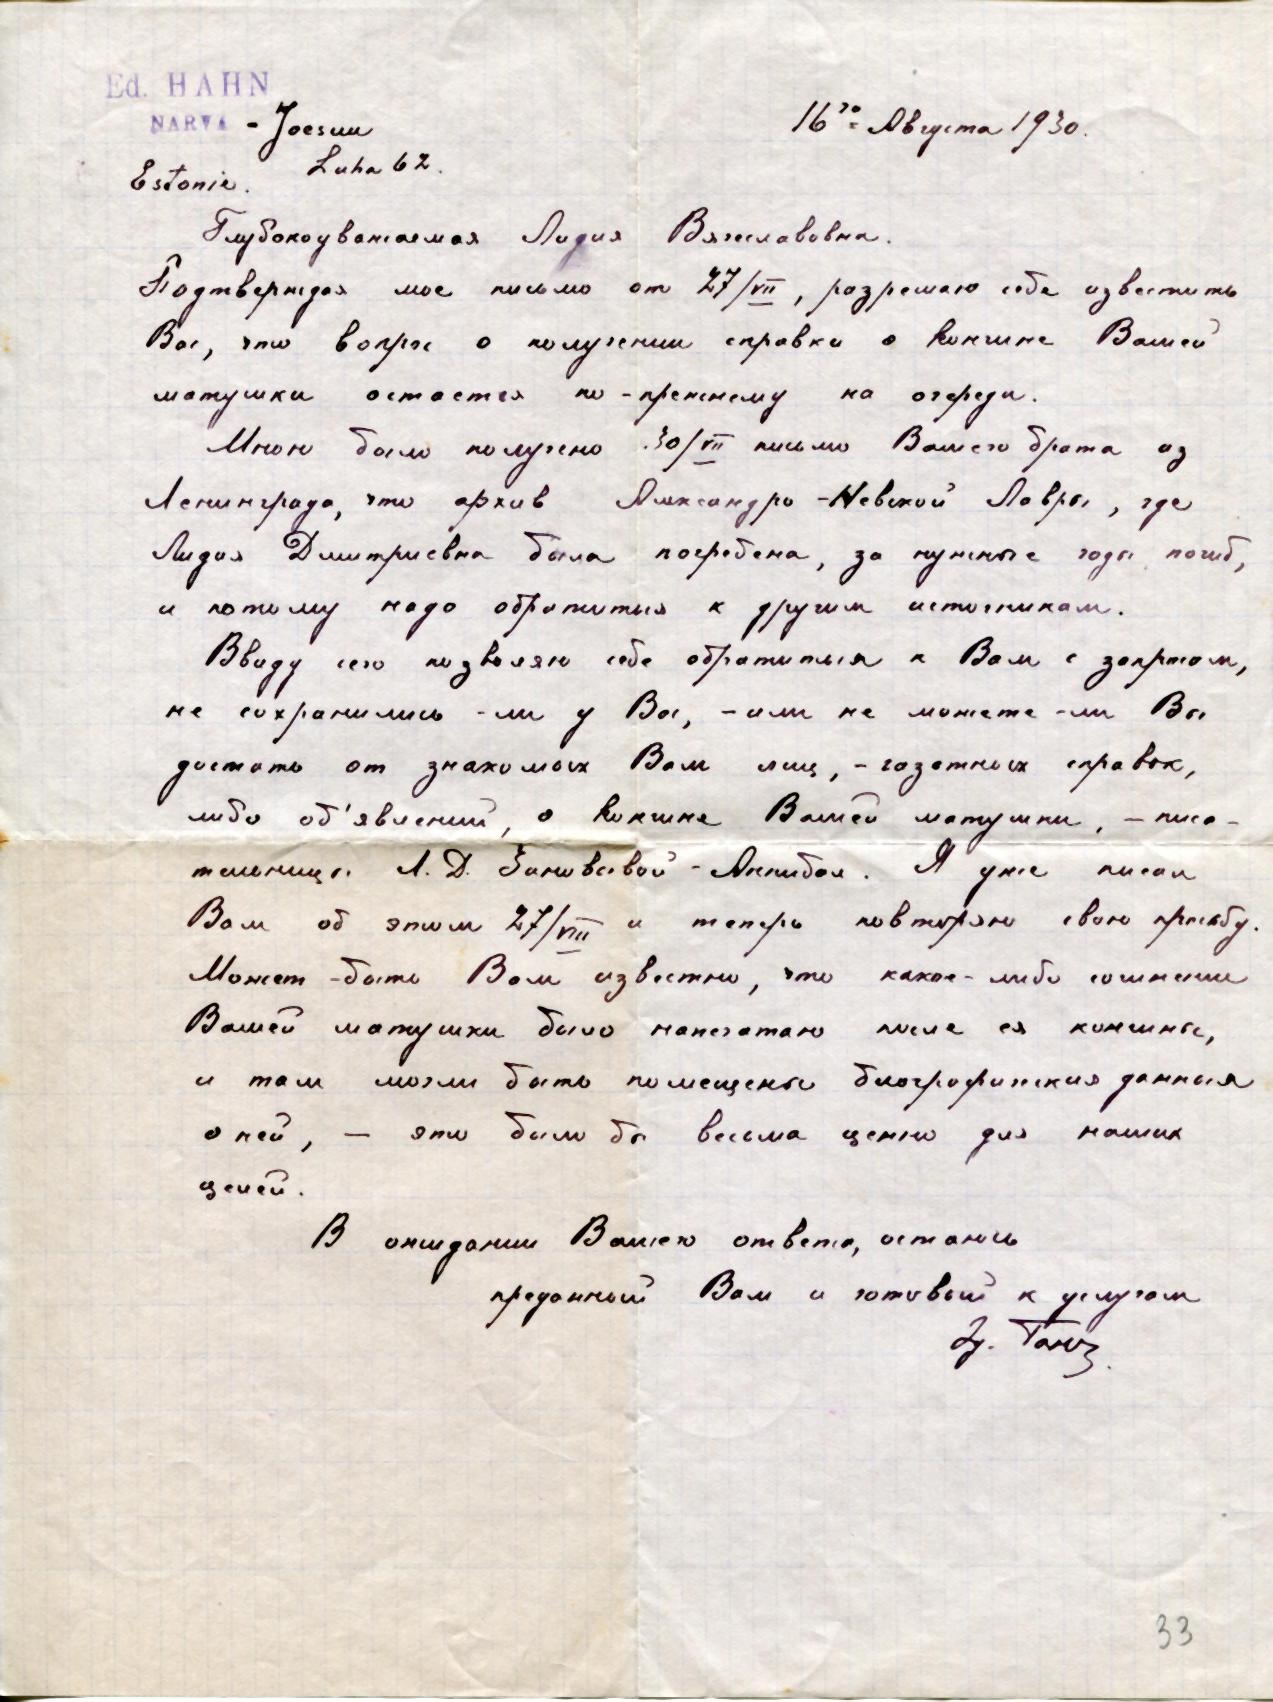 Ed. HAHN
NARVA - Joesuu
Luha 62.
Estonie.
16го Августа 1930.
Глубокоуважаемая Лидия Вячеславовна.
Подтверждая мое письмо от 27/VII, разрешаю себе известить
Вас, что вопрос о получении справки о кончине Вашей
матушки остается по-прежнему на очереди.
Мною было получено 30/VII письмо Вашего брата из
Ленинграда, что архив Александро-Невской Лавры, где
Лидия Дмитриевна была погребена, за нужные годы погиб,
и потому надо обратиться к другим источникам.
Ввиду сего позволяю себе обратиться к Вам с запросом,
не сохранились-ли у Вас, - или не можете-ли Вы
достать от знакомых Вам лиц, - газетных справок,
либо об'явлений, о кончине Вашей матушки, - писа-
тельницы Л. Д. Зиновьевой-Аннибал. Я уже писал
Вам об этом 27/VII и теперь повторяю свою просьбу.
Может-быть Вам известно, что какое-либо сочинение
Вашей матушки было напечатано после ея кончины,
и там могли быть помещены биографическия данныя
о ней, - это было бы весьма ценно для наших
целей.
В ожидании Вашего ответа, остаюсь
преданный Вам и готовый к услугам
Эд. Ган
33